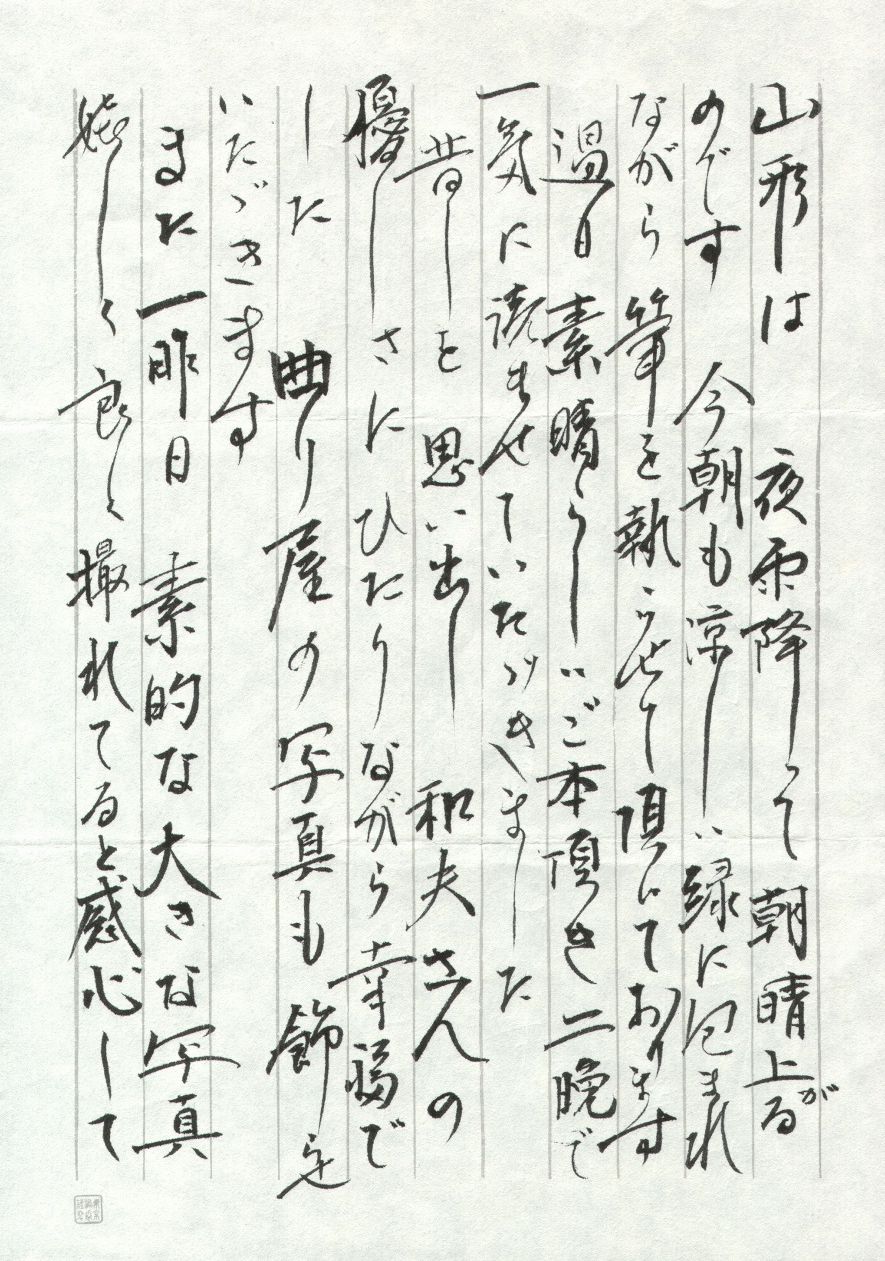 山形は 夜雨降って 朝晴上がる
のです 今朝も涼しい緑に包まれ
ながら 筆を執らせて頂いております
過日 素晴らしいご本頂き 二晩で
一気に読ませていただきました
昔しを 思い出し 和夫さんの
優しさにひたりながら 幸福で
した 曲り屋の写真も 飾らせて
いただきます
また 一昨日 素的な大きな写真
嬉しく 良く 撮れてると感心して